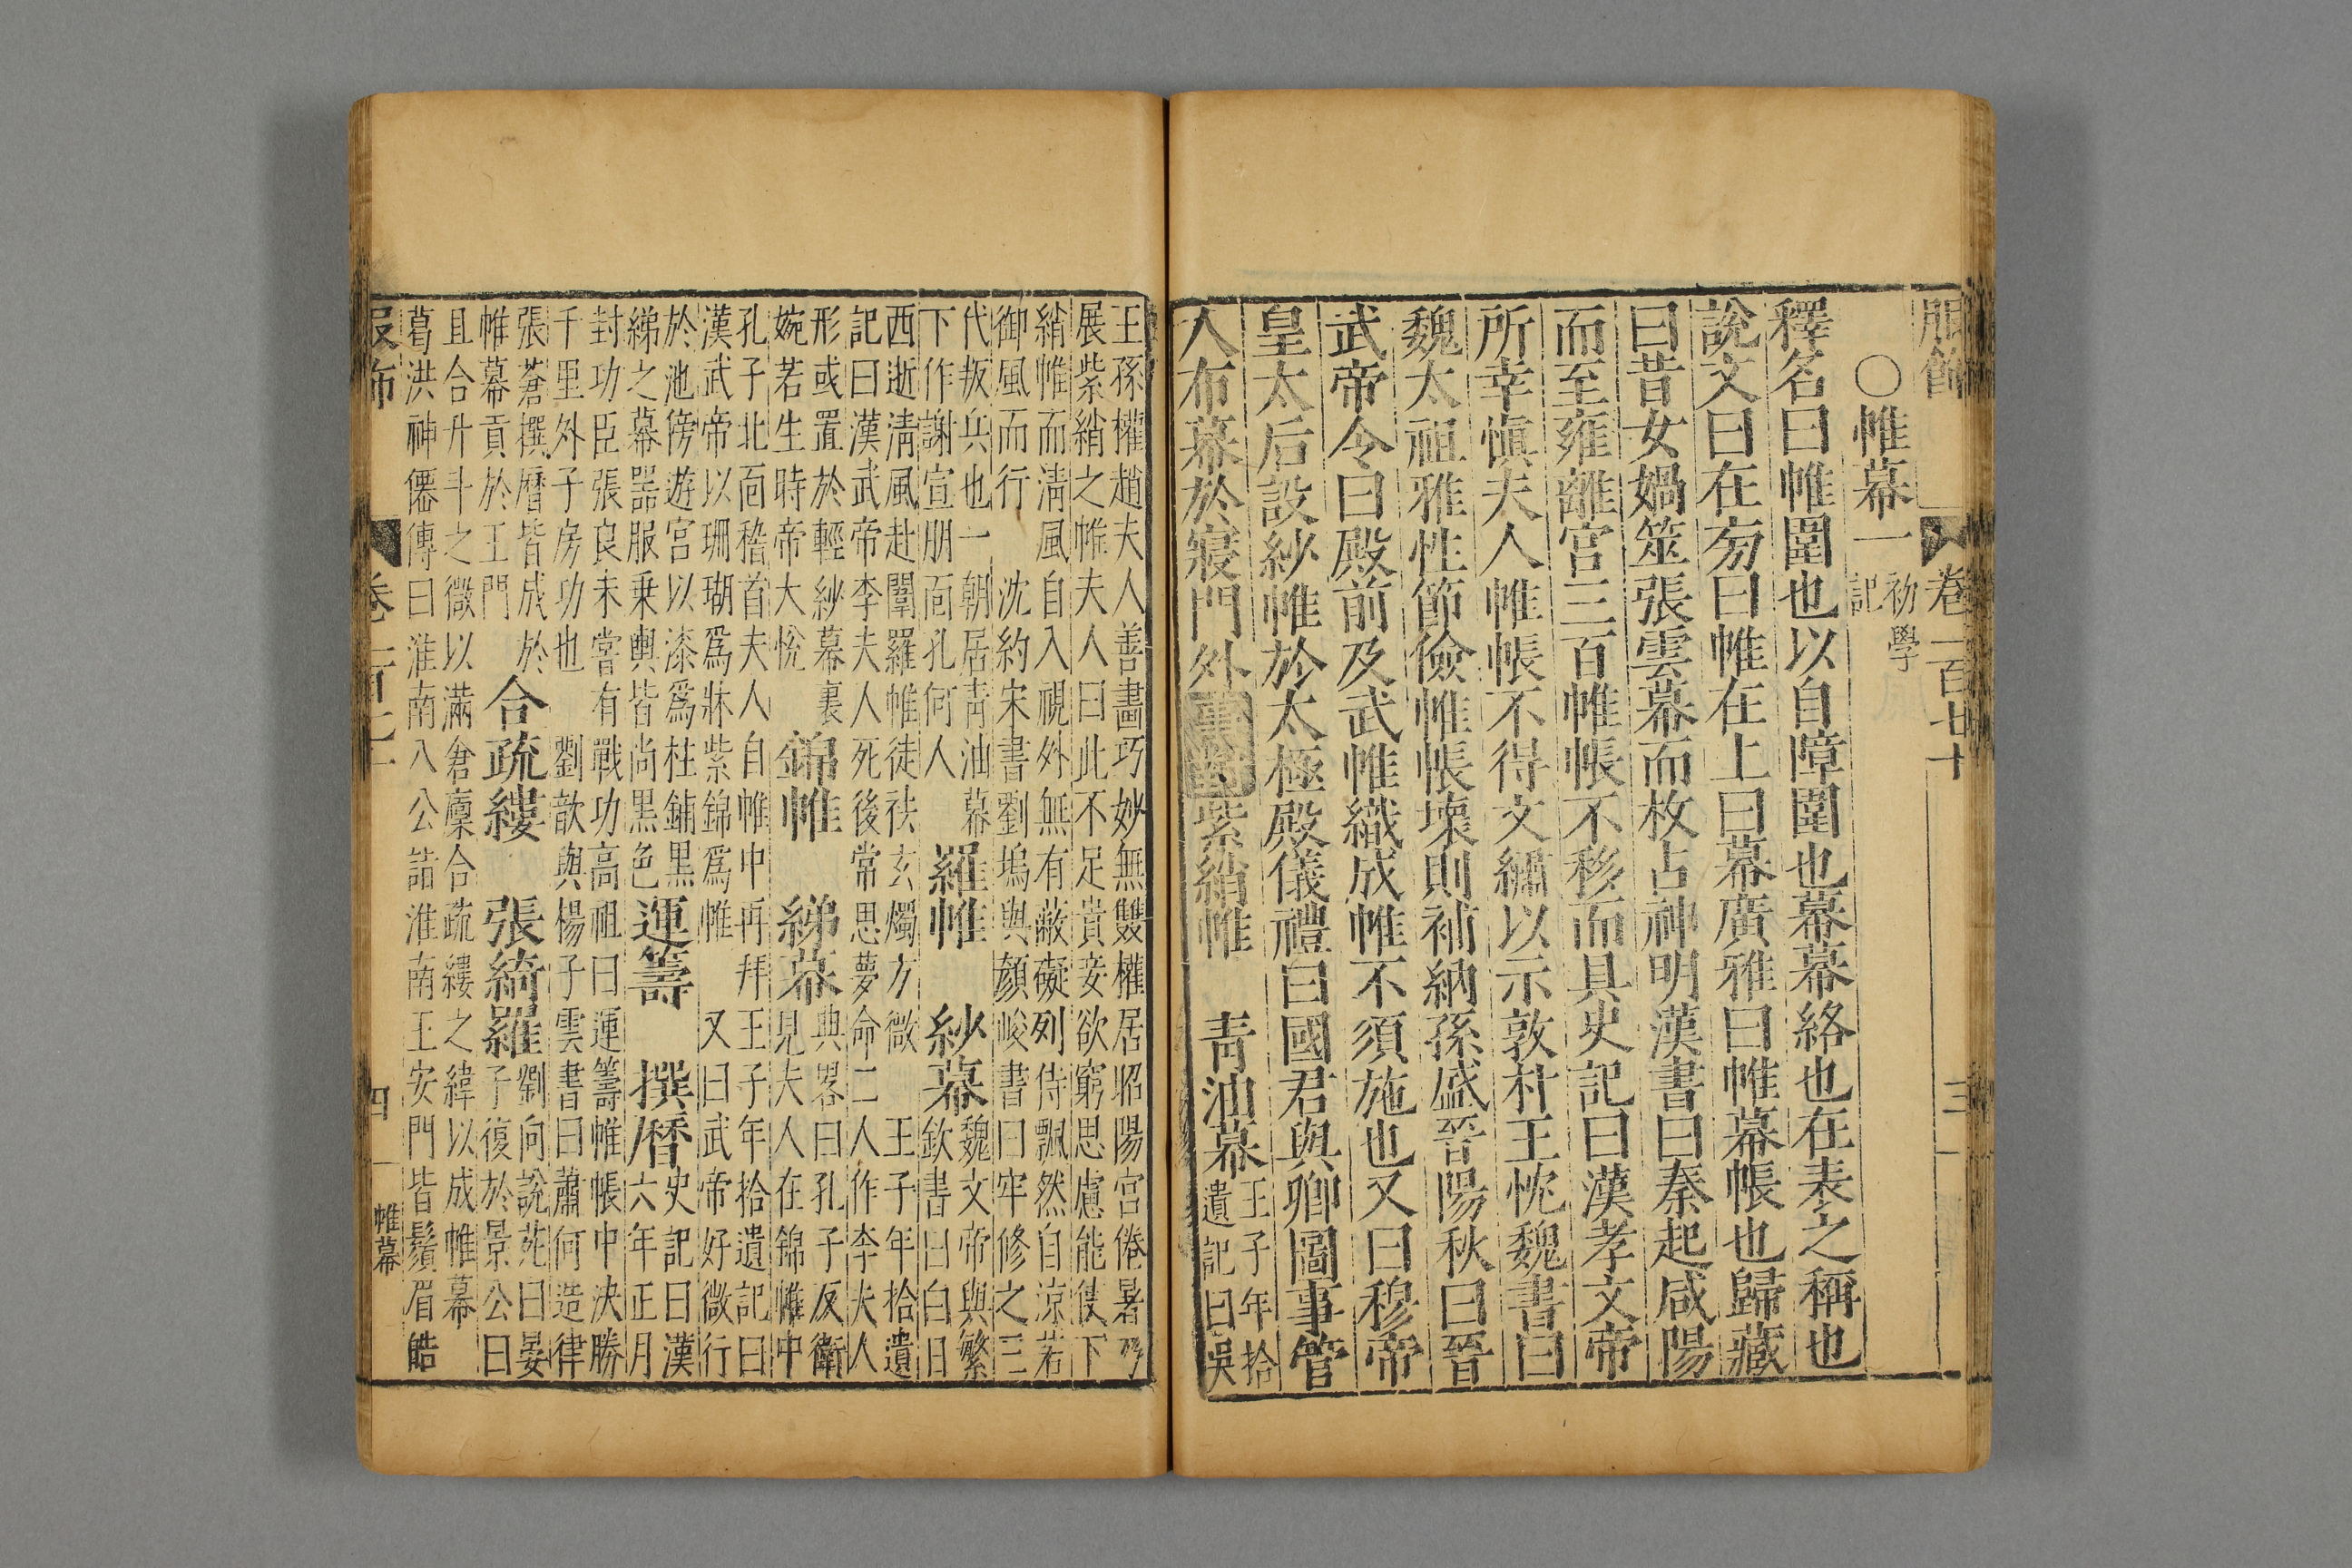 服飾 卷一百七十 三
○帷幕一 初學記
釋名曰帷圍也以自障圍也幕幕絡也在表之稱也
說文曰在旁曰帷在上曰幕廣雅曰帷幕帳也歸藏
曰昔女媧筮張雲幕而枚占神明漢書曰秦起咸陽
而至雍離宮三百帷帳不移而具史記曰漢孝文帝
所幸慎夫人帷帳不得文繡以示敦朴王忱魏書曰
魏太祖雅性節儉帷帳壞則補納孫盛晉陽秋曰晉
武帝令曰殿前及武帷織成帷不須施也又曰穆帝
皇太后設紗帷於太極殿儀禮曰國君與卿圖事管
人布幕於寢門外事對紫綃帷 青油幕
王子年拾
遺記曰吳
王孫權趙夫人善畫巧妙無雙權居昭陽宮倦暑乃
展紫綃之帷夫人曰此不足貴妾欲窮思慮能使下
綃帷而清風自入視外無有蔽礙列侍飄然自涼若
御風而行 沈約宋書劉塢與顏峻書曰牢修之三
代叛兵也一朝居青油幕
下作謝宣朋面孔何人
羅帷 紗幕
魏文帝與繁
欽書曰白日
西逝清風赴闈羅帷徒袪玄燭方微 王子年拾遺
記曰漢武帝李夫人死後常思夢命二人作李夫人
形或置於輕紗幕裏
婉若生時帝大悅
錦帷 綈幕
典畧曰孔子反衛
見夫人在錦帷中
孔子北面稽首夫人自帷中再拜 王子年拾遺記曰
漢武帝以珊瑚爲牀紫錦爲帷 又曰武帝好微行
於池傍遊宮以漆爲柱鋪黑
綈之幕器服乗輿皆尚黑色
運籌 撰曆
史記曰漢
六年正月
封功臣張良未嘗有戰功高祖曰運籌帷帳中決勝
千里外子房功也 劉歆與楊子雲書曰蕭何造律
張蒼撰曆皆成於
帷幕貢於王門
合疏縷 張綺羅
劉向說苑曰晏
子復於景公曰
且合升斗之微以滿倉廩合疏縷之緯以成帷幕
葛洪神僊傳曰淮南八公詣淮南王安門皆鬚眉皓
服飾 卷一百七十 四 帷幕